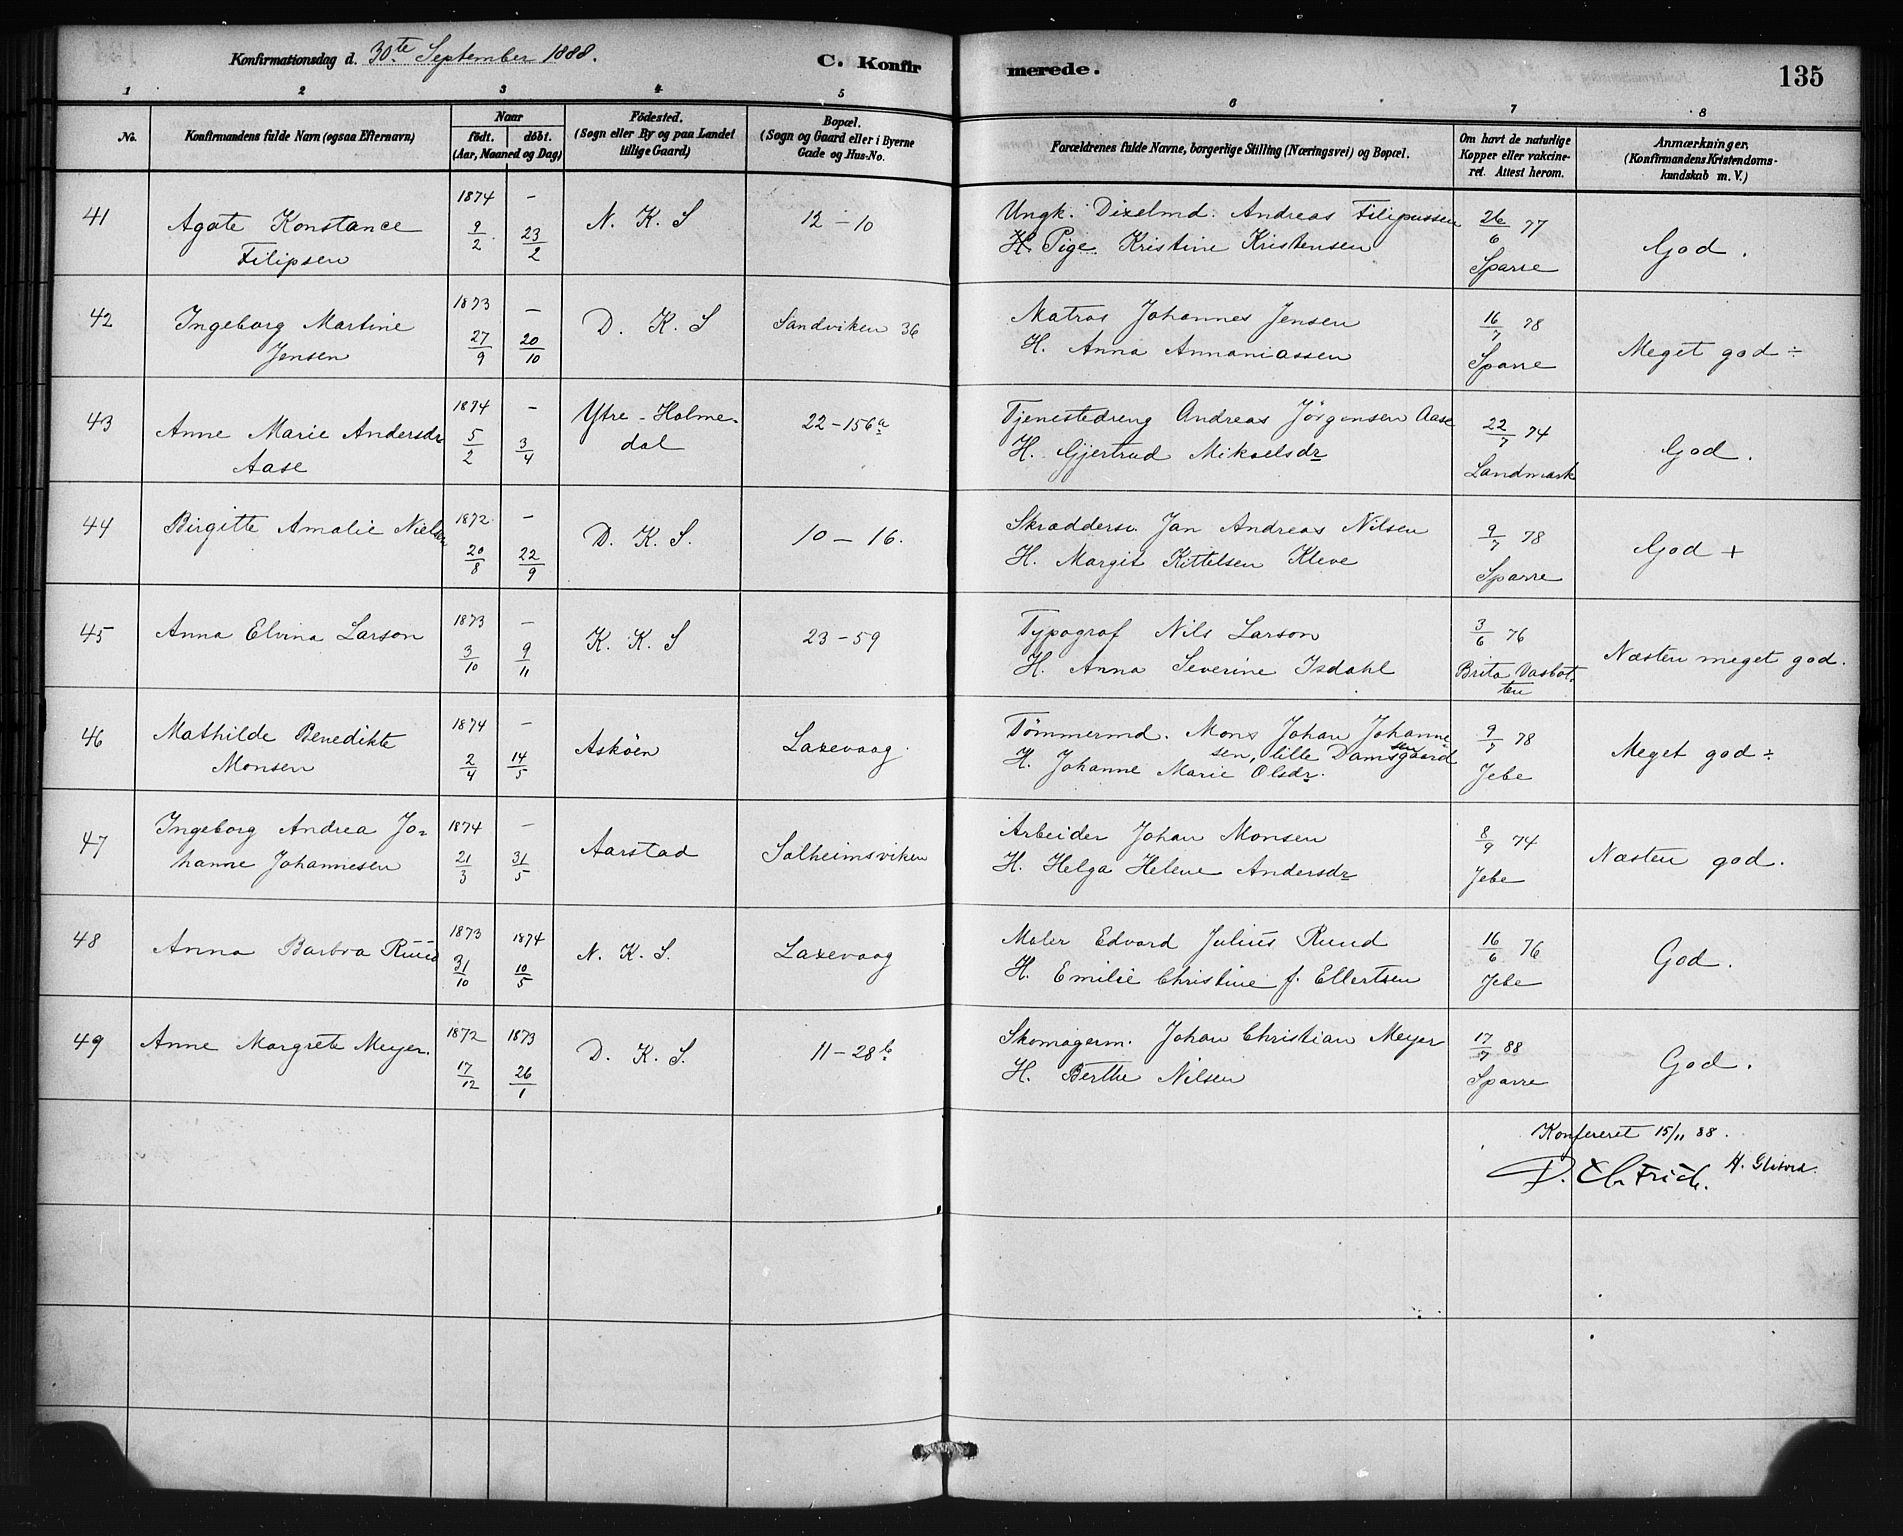 Konfirmationsdag d. 30.te September 1888.
C. Konfirmerede.
135
1 2 3 4 5 6 7 8
No.
Konfirmandens fulde Navn (ogsaa Efternavn)
Naar
födt. döbt.
(Aar, Maaned og Dag)
Födested.
(Sogn eller By og paa Landet
tillige Gaard)
Bopæl.
(Sogn og Gaard eller i Byerne
Gade og Hus-No.
Forældrenes fulde Navne, borgerlige Stilling (Næringsvei) og Bopæl.
Om havt de naturlige
Kopper eller vakcine-
ret. Attest herom.
Anmærkninger,
(Konfirmandens Kristendoms-
kundskab m. V.)
41 Agate Konstance 1874 9/2 – 23/2 N. K. S 12–10 Ungk. Dixelmd. Andreas Filipussen 26/6 77
Filipsen H. Pige Kristine Kristensen Sparre God.
42 Ingeborg Martine 1873 27/9 – 20/10 D. K. S Sandviken 36 Matros Johannes Jensen 16/7 78
Jensen H. Anna Annaniassen Sparre Meget god ÷
43 Anne Marie Andersdr 1874 5/2 – 3/4 Ytre-Holme- 22–156a Tjenestedreng Andreas Jörgensen Aase 22/7 74
Aase dal H. Gjertrud Mikaelsdr Landmark God.
44 Birgitte Amalie Nielsen 1872 20/8 – 22/9 D. K. S. 10–16. Skræddersv. Jan Andreas Nilsen 9/7 78
H. Margit Kittelsen Kleve Sparre God +
45 Anna Elvina Larson 1873 3/10 – 9/11 K. K. S 23–59 Typograf Nils Larson 3/6 76
H. Anna Severine Isdahl Brita Vasbot-
ten Næsten meget god.
46 Mathilde Benedikte 1874 2/4 – 14/5 Askøen Laxevaag. Tömmermd. Mons Johan Johanne- 9/7 78
Monsen sen, lille Damsgaard
H. Johanne Marie Olsdr. Jebe Meget god ÷
47 Ingeborg Andrea Jo- 1874 21/3 – 31/5 Aarstad Solheimsviken Arbeider Johan Monsen 8/9 74
hanne Johannesen H. Helga Helene Andersdr Jebe Næsten god.
48 Anna Barbra Ruud 1873 31/10 1874 10/5 N. K. S. Laxevaag Maler Edvard Julius Ruud 16/6 76
H. Emilie Christine f. Ellertsen Jebe God.
49 Anne Margrete Meyer. 1872 17/12 1873 26/1 D. K. S. 11–28b Skomagerm. Johan Christian Meyer 17/7 88
H. Berthe Nilsen Sparre God.
Konfereret 15/11 88.